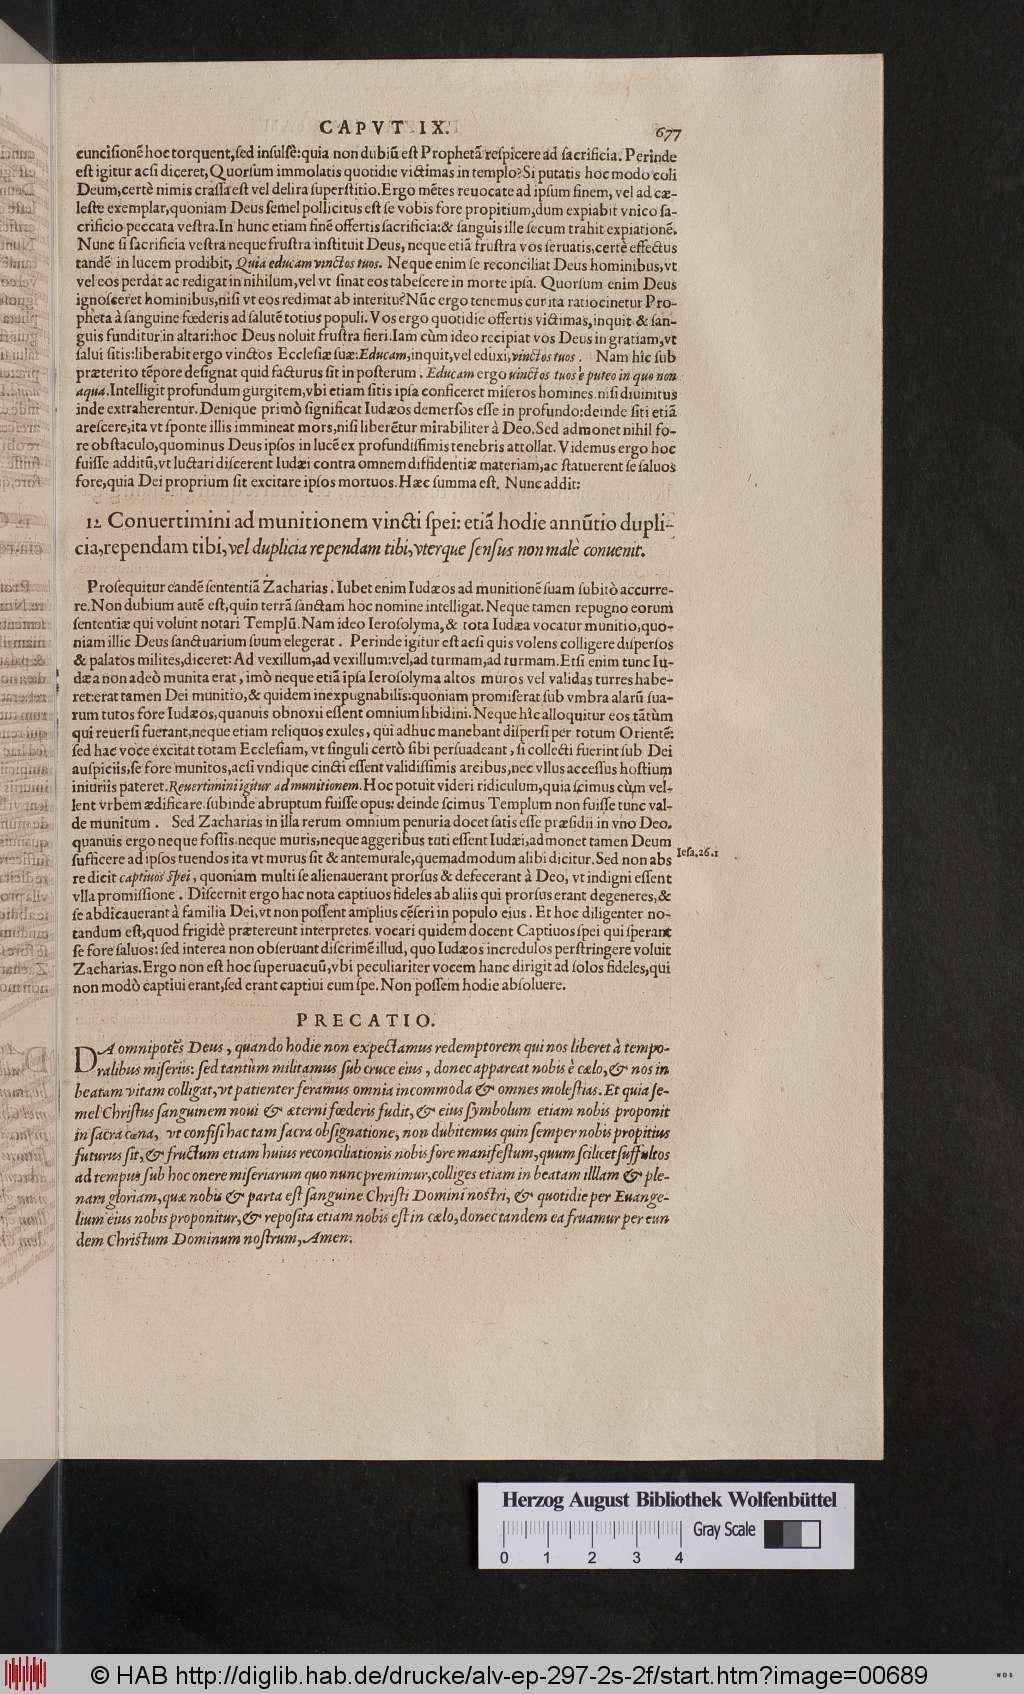 CAPVT IX. 677
cuncisionē hoc torquent, sed insulsè: quia non dubiū est Prophetā respicere ad sacrificia. Perinde
est igitur acsi diceret, Quorsum immolatis quotidie victimas in templo? Si putatis hoc modo coli
Deum, certè nimis crassa est vel delira superstitio. Ergo mētes reuocate ad ipsum finem, vel ad cæ-
leste exemplar, quoniam Deus semel pollicitus est se vobis fore propitium, dum expiabit vnico sa-
crificio peccata vestra. In hunc etiam finē offertis sacrificia: & sanguis ille secum trahit expiationē.
Nunc si sacrificia vestra neque frustra instituit Deus, neque etiā frustra vos seruatis, certè effectus
tandē in lucem prodibit, Quia educam vinctos tuos. Neque enim se reconciliat Deus hominibus, vt
vel eos perdat ac redigat in nihilum, vel vt sinat eos tabescere in morte ipsa. Quorsum enim Deus
ignosceret hominibus, nisi vt eos redimat ab interitu? Nūc ergo tenemus cur ita ratiocinetur Pro-
pheta à sanguine fœderis ad salutē totius populi. Vos ergo quotidie offertis victimas, inquit & san-
guis funditur in altari: hoc Deus noluit frustra fieri. Iam cùm ideo recipiat vos Deus in gratiam, vt
salui sitis: liberabit ergo vinctos Ecclesiæ suæ: Educam, inquit, vel eduxi, vinctos tuos. Nam hîc sub
præterito tēpore designat quid facturus sit in posterum. Educam ergo vinctos tuos è puteo in quo non
aqua. Intelligit profundum gurgitem, vbi etiam sitis ipsa conficeret miseros homines nisi diuinitus
inde extraherentur. Denique primò significat Iudæos demersos esse in profundo: deinde siti etiā
arescere, ita vt sponte illis immineat mors, nisi liberētur mirabiliter à Deo. Sed admonet nihil fo-
re obstaculo, quominus Deus ipsos in lucē ex profundissimis tenebris attollat. Videmus ergo hoc
fuisse additū, vt luctari discerent Iudæi contra omnem diffidentiæ materiam, ac statuerent se saluos
fore, quia Dei proprium sit excitare ipsos mortuos. Hæc summa est. Nunc addit:
12 Conuertimini ad munitionem vincti spei: etiā hodie annūtio dupli-
cia, rependam tibi, vel duplicia rependam tibi, vterque sensus non malè conuenit.
Prosequitur eandē sententiā Zacharias. Iubet enim Iudæos ad munitionē suam subitò accurre-
re. Non dubium autē est, quin terrā sanctam hoc nomine intelligat. Neque tamen repugno eorum
sententiæ qui volunt notari Templū. Nam ideo Ierosolyma, & tota Iudæa vocatur munitio, quo-
niam illic Deus sanctuarium suum elegerat. Perinde igitur est acsi quis volens colligere dispersos
& palatos milites, diceret: Ad vexillum, ad vexillum: vel, ad turmam, ad turmam. Etsi enim tunc Iu-
dæa non adeò munita erat, imò neque etiā ipsa Ierosolyma altos muros vel validas turres habe-
ret: erat tamen Dei munitio, & quidem inexpugnabilis: quoniam promiserat sub vmbra alarū sua-
rum tutos fore Iudæos, quanuis obnoxii essent omnium libidini. Neque hîc alloquitur eos tātùm
qui reuersi fuerant, neque etiam reliquos exules, qui adhuc manebant dispersi per totum Orientē:
sed hac voce excitat totam Ecclesiam, vt singuli certò sibi persuadeant, si collecti fuerint sub Dei
auspiciis, se fore munitos, acsi vndique cincti essent validissimis arcibus, nec vllus accessus hostium
iniuriis pateret. Reuertimini igitur ad munitionem. Hoc potuit videri ridiculum, quia scimus cùm vel-
lent vrbem ædificare. subinde abruptum fuisse opus: deinde scimus Templum non fuisse tunc val-
de munitum. Sed Zacharias in illa rerum omnium penuria docet satis esse præsidii in vno Deo.
quanuis ergo neque fossis neque muris, neque aggeribus tuti essent Iudæi, admonet tamen Deum
sufficere ad ipsos tuendos ita vt murus sit & antemurale, quemadmodum alibi dicitur. Sed non abs Iesa. 26. 1
re dicit captiuos spei, quoniam multi se alienauerant prorsus & defecerant à Deo, vt indigni essent
vlla promissione. Discernit ergo hac nota captiuos fideles ab aliis qui prorsus erant degeneres, &
se abdicauerant à familia Dei, vt non possent amplius cēseri in populo eius. Et hoc diligenter no-
tandum est, quod frigidè prætereunt interpretes. vocari quidem docent Captiuos spei qui sperant
se fore saluos: sed interea non obseruant discrimē illud, quo Iudæos incredulos perstringere voluit
Zacharias. Ergo non est hoc superuacuū, vbi peculiariter vocem hanc dirigit ad solos fideles, qui
non modò captiui erant, sed erant captiui cum spe. Non possem hodie absoluere.
PRECATIO.
DA omnipotēs Deus, quando hodie non expectamus redemptorem qui nos liberet à tempo-
ralibus miseriis: sed tantùm militamus sub cruce eius, donec appareat nobis è cœlo, & nos in
beatam vitam colligat, vt patienter feramus omnia incommoda & omnes molestias. Et quia se-
mel Christus sanguinem noui & æterni fœderis fudit, & eius symbolum etiam nobis proponit
in sacra cœna, vt confisi hac tam sacra obsignatione, non dubitemus quin semper nobis propitius
futurus sit, & fructum etiam huius reconciliationis nobis fore manifestum, quum scilicet suffultos
ad tempus sub hoc onere miseriarum quo nunc premimur, colliges etiam in beatam illlam & ple-
nam gloriam, quæ nobis & parta est sanguine Christi Domini nostri, & quotidie per Euange-
lium eius nobis proponitur, & reposita etiam nobis est in cœlo, donec tandem ea fruamur per eun
dem Christum Dominum nostrum, Amen.
Herzog August Bibliothek Wolfenbüttel
Gray Scale
0 1 2 3 4
© HAB http://diglib.hab.de/drucke/alv-ep-297-2s-2f/start.htm?image=00689